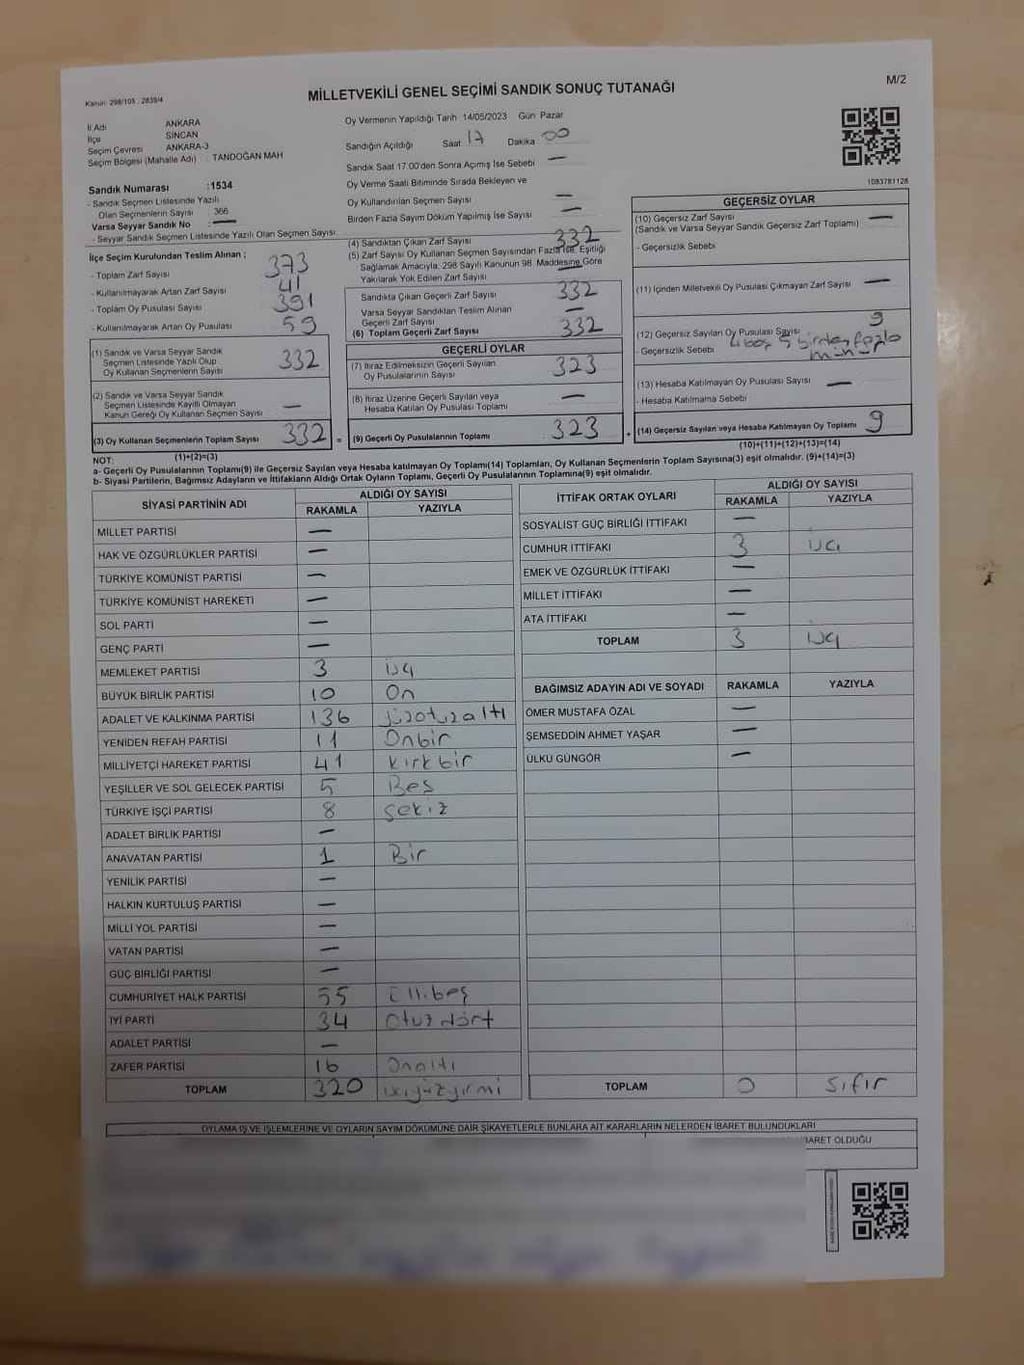 Kanun: 298/105 , 2839/4
MİLLETVEKİLİ GENEL SEÇİMİ SANDIK SONUÇ TUTANAĞI
M/2
İl Adı ANKARA
İlçe SİNCAN
Seçim Çevresi ANKARA-3
Seçim Bölgesi (Mahalle Adı) : TANDOĞAN MAH
Sandık Numarası :1534
- Sandık Seçmen Listesinde Yazılı
Olan Seçmenlerin Sayısı : 366
Varsa Seyyar Sandık No : —
- Seyyar Sandık Seçmen Listesinde Yazılı Olan Seçmen Sayısı:
Oy Vermenin Yapıldığı Tarih 14/05/2023 Gün Pazar
Sandığın Açıldığı Saat 17 Dakika 00
Sandık Saat 17.00'den Sonra Açımış İse Sebebi —
Oy Verme Saati Bitiminde Sırada Bekleyen ve
Oy Kullandırılan Seçmen Sayısı —
Birden Fazla Sayım Döküm Yapılmış İse Sayısı —
1083781128
İlçe Seçim Kurulundan Teslim Alınan ;
- Toplam Zarf Sayısı 373
- Kullanılmayarak Artan Zarf Sayısı 41
- Toplam Oy Pusulası Sayısı 391
- Kullanılmayarak Artan Oy Pusulası 59
(1) Sandık ve Varsa Seyyar Sandık
Seçmen Listesinde Yazılı Olup
Oy Kullanan Seçmenlerin Sayısı 332
(2) Sandık ve Varsa Seyyar Sandık
Seçmen Listesinde Kayıtlı Olmayan
Kanun Gereği Oy Kullanan Seçmen Sayısı —
(3) Oy Kullanan Seçmenlerin Toplam Sayısı 332 =
(1)+(2)=(3)
(4) Sandıktan Çıkan Zarf Sayısı 332
(5) Zarf Sayısı Oy Kullanan Seçmen Sayısından Fazla İse, Eşitliği
Sağlamak Amacıyla, 298 Sayılı Kanunun 98. Maddesine Göre
Yakılarak Yok Edilen Zarf Sayısı —
Sandıkta Çıkan Geçerli Zarf Sayısı 332
Varsa Seyyar Sandıktan Teslim Alınan
Geçerli Zarf Sayısı —
(6) Toplam Geçerli Zarf Sayısı 332
GEÇERLİ OYLAR
(7) İtiraz Edilmeksizin Geçerli Sayılan
Oy Pusulalarının Sayısı 323
(8) İtiraz Üzerine Geçerli Sayılan veya
Hesaba Katılan Oy Pusulası Toplamı —
(9) Geçerli Oy Pusulalarının Toplamı 323 +
GEÇERSİZ OYLAR
(10) Geçersiz Zarf Sayısı —
(Sandık ve Varsa Seyyar Sandık Geçersiz Zarf Toplamı)
- Geçersizlik Sebebi
(11) İçinden Milletvekili Oy Pusulası Çıkmayan Zarf Sayısı —
(12) Geçersiz Sayılan Oy Pusulası Sayısı 9
- Geçersizlik Sebebi 4 boş 5 birden fazla
mühür
(13) Hesaba Katılmayan Oy Pusulası Sayısı —
- Hesaba Katılmama Sebebi
(14) Geçersiz Sayılan veya Hesaba Katılmayan Oy Toplamı 9
(10)+(11)+(12)+(13)=(14)
NOT:
a- Geçerli Oy Pusulalarının Toplamı(9) ile Geçersiz Sayılan veya Hesaba katılmayan Oy Toplamı(14) Toplamları, Oy Kullanan Seçmenlerin Toplam Sayısına(3) eşit olmalıdır. (9)+(14)=(3)
b- Siyasi Partilerin, Bağımsız Adayların ve İttifakların Aldığı Ortak Oyların Toplamı, Geçerli Oy Pusulalarının Toplamına(9) eşit olmalıdır.
SİYASİ PARTİNİN ADI ALDIĞI OY SAYISI
RAKAMLA YAZIYLA
MİLLET PARTİSİ —
HAK VE ÖZGÜRLÜKLER PARTİSİ —
TÜRKİYE KOMÜNİST PARTİSİ —
TÜRKİYE KOMÜNİST HAREKETİ —
SOL PARTİ —
GENÇ PARTİ —
MEMLEKET PARTİSİ 3 üç
BÜYÜK BİRLİK PARTİSİ 10 On
ADALET VE KALKINMA PARTİSİ 136 yüzotuzaltı
YENİDEN REFAH PARTİSİ 11 Onbir
MİLLİYETÇİ HAREKET PARTİSİ 41 Kırkbir
YEŞİLLER VE SOL GELECEK PARTİSİ 5 Beş
TÜRKİYE İŞÇİ PARTİSİ 8 Sekiz
ADALET BİRLİK PARTİSİ —
ANAVATAN PARTİSİ 1 Bir
YENİLİK PARTİSİ —
HALKIN KURTULUŞ PARTİSİ —
MİLLİ YOL PARTİSİ —
VATAN PARTİSİ —
GÜÇ BİRLİĞİ PARTİSİ —
CUMHURİYET HALK PARTİSİ 55 Ellibeş
İYİ PARTİ 34 Otuzdört
ADALET PARTİSİ —
ZAFER PARTİSİ 16 Onaltı
TOPLAM 320 üçyüzyirmi
İTTİFAK ORTAK OYLARI ALDIĞI OY SAYISI
RAKAMLA YAZIYLA
SOSYALİST GÜÇ BİRLİĞİ İTTİFAKI —
CUMHUR İTTİFAKI 3 üç
EMEK VE ÖZGÜRLÜK İTTİFAKI —
MİLLET İTTİFAKI —
ATA İTTİFAKI —
TOPLAM 3 üç
BAĞIMSIZ ADAYIN ADI VE SOYADI RAKAMLA YAZIYLA
ÖMER MUSTAFA ÖZAL —
ŞEMSEDDİN AHMET YAŞAR —
ÜLKÜ GÜNGÖR —
TOPLAM 0 Sıfır
OYLAMA İŞ VE İŞLEMLERİNE VE OYLARIN SAYIM DÖKÜMÜNE DAİR ŞİKAYETLERLE BUNLARA AİT KARARLARIN NELERDEN İBARET BULUNDUKLARI
BARET OLDUĞU